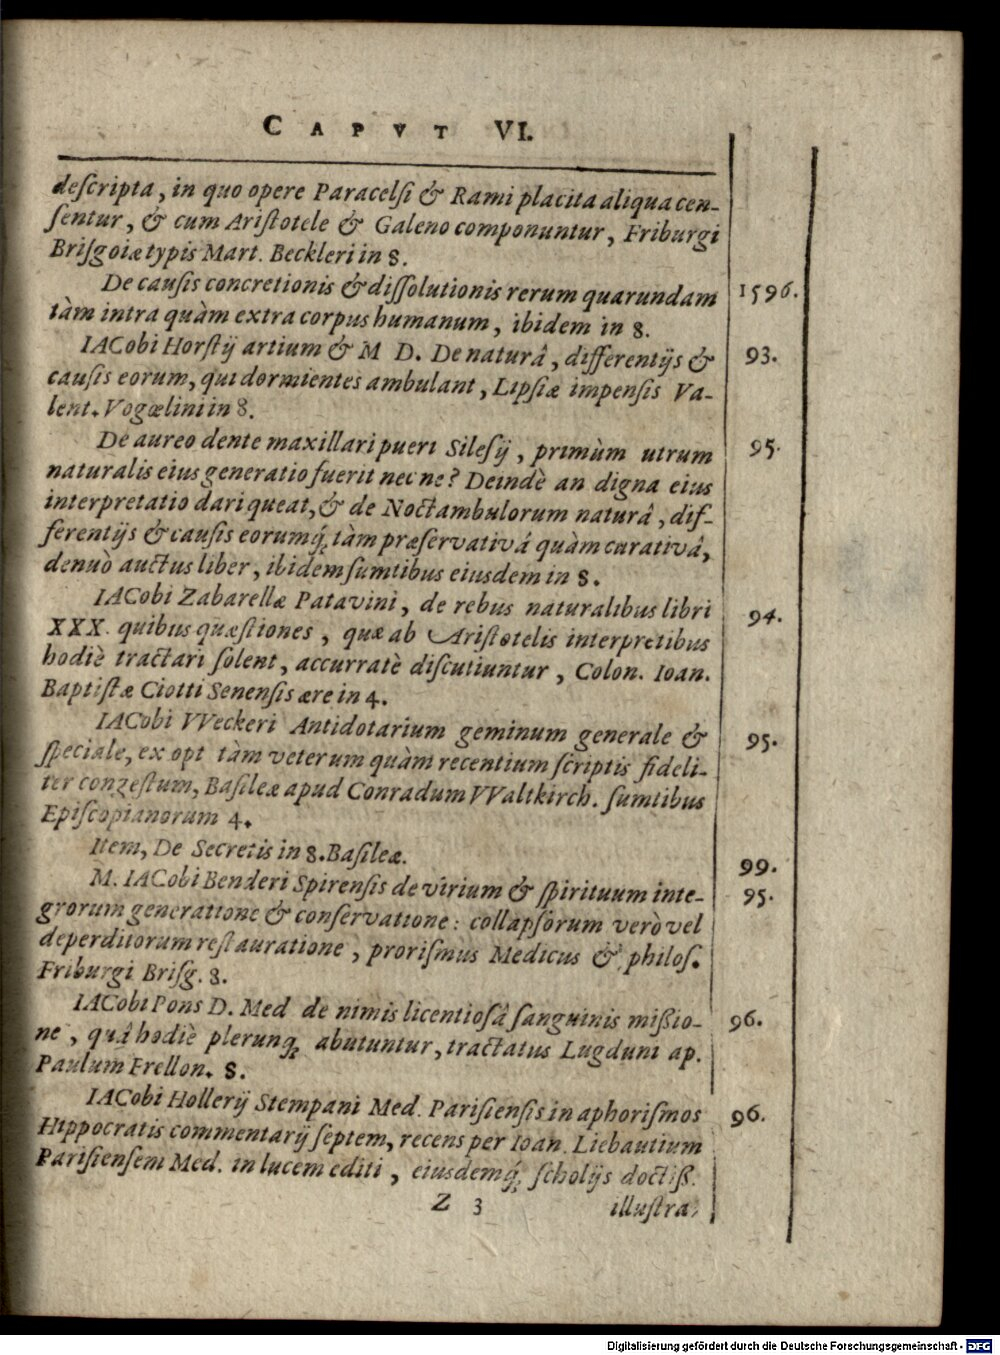 CAPVT VI.
deſcripta, in quo opere Paracelſi & Rami placita aliqua cen-
ſentur, & cum Ariſtotele & Galeno componuntur, Friburgi
Briſgoiæ typis Mart. Beckleri in 8.
De cauſis concretionis & diſſolutionis rerum quarundam 1596.
tàm intra quàm extra corpus humanum, ibidem in 8.
IACobi Horſtij artium & M D. De naturâ, differentijs & 93.
cauſis eorum, qui dormientes ambulant, Lipſiæ impenſis Va-
lent. Vogœlini in 8.
De aureo dente maxillari pueri Sileſij, primùm utrum 95.
naturalis eius generatio fuerit nec ne? Deindè an digna eius
interpretatio dari queat, & de Noctambulorum naturâ, dif-
ferentijs & cauſis eorumq́; tàm præſervativâ quàm curativâ,
denuò auctus liber, ibidem ſumtibus eiusdem in 8.
IACobi Zabarellæ Patavini, de rebus naturalibus libri 94.
XXX. quibus quæſtiones, quæ ab Ariſtotelis interpretibus
hodiè tractari ſolent, accurratè diſcutiuntur, Colon. Ioan.
Baptiſtæ Ciotti Senenſis ære in 4.
IACobi VVeckeri Antidotarium geminum generale & 95.
ſpeciale, ex opt tàm veterum quàm recentium ſcriptis fideli-
ter congeſtum, Baſileæ apud Conradum VValtkirch. ſumtibus
Epiſcopianorum 4.
Item, De Secretis in 8. Baſileæ. 99.
M. IACobi Benderi Spirenſis de virium & ſpirituum inte- 95.
grorum generatione & conſervatione: collapſorum verò vel
deperditorum reſtauratione, proriſmus Medicus & philoſ.
Friburgi Briſg. 8.
IACobi Pons D. Med de nimis licentioſâ ſanguinis mißio- 96.
ne, quâ hodiè plerunq; abutuntur, tractatus Lugduni ap.
Paulum Frellon. 8.
IACobi Hollerij Stempani Med. Pariſienſis in aphoriſmos 96.
Hippocratis commentarij ſeptem, recens per Ioan. Liebautium
Pariſienſem Med. in lucem editi, eiusdemq́; ſcholijs doctiß.
Z 3 illuſtra-
Digitalisierung gefördert durch die Deutsche Forschungsgemeinschaft - DFG